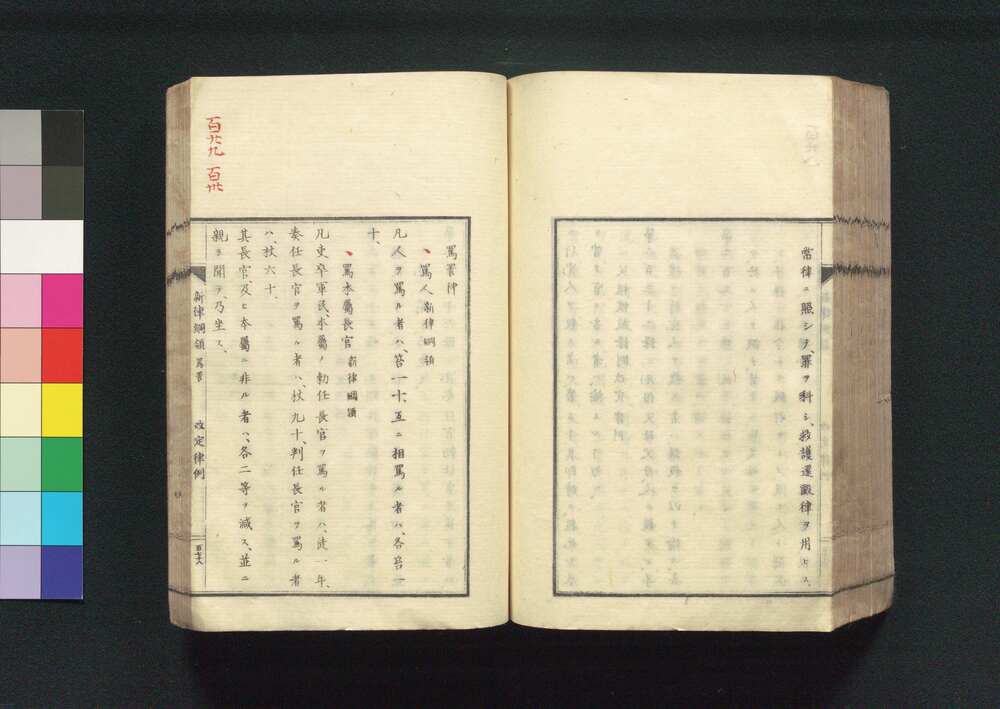 常律ニ照シテ、罪ヲ科シ、救護還毆律ヲ用ヒス、
百廿九 百卅
罵詈律
罵人 新律綱領
凡人ヲ罵ル者ハ、笞一十、互ニ相罵ル者ハ、各笞一
十、
罵本屬長官 新律綱領
凡吏卒軍民、本屬ノ勅任長官ヲ罵ル者ハ、徒一年、
奏任長官ヲ罵ル者ハ、杖九十、判任長官ヲ罵ル者
ハ、杖六十、
其長官、及ヒ本屬ニ非ル者ハ、各二等ヲ減ス、並ニ
親ラ聞テ、乃坐ス、
新律綱領 罵詈 改定律例